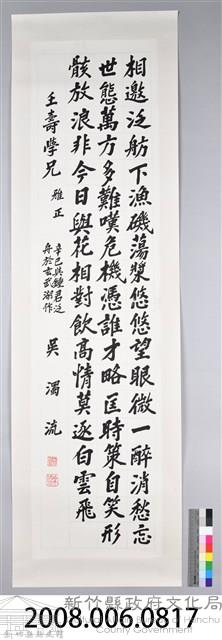 相邀泛舫下漁磯蕩槳悠悠望眼微一醉消愁忘
世態萬方多難嘆危機憑誰才略匡時策自笑形
骸放浪非今日與花相對飲高情莫逐白雲飛
壬壽學兄 雅正
辛巳與鍾君泛
舟於玄武湖作
吳濁流
新竹縣政府文化局
County Government
2008.006.0817